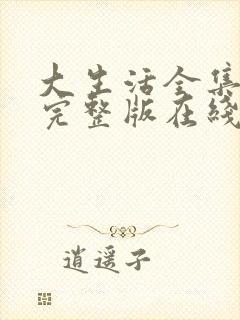 大生活全集
完整版在线
逍遥子